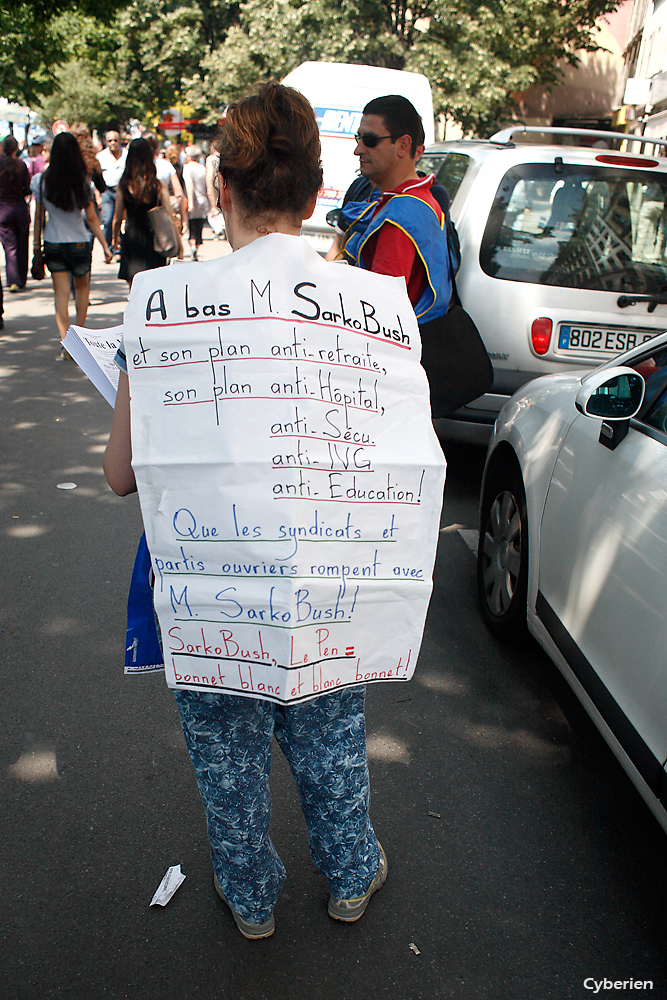 A bas M. SarkoBush
et son plan anti-retraite,
son plan anti-Hôpital,
anti-Sécu.
anti-IVG
anti-Education!
Que les syndicats et
partis ouvriers rompent avec
M. SarkoBush!
SarkoBush, Le Pen =
bonnet blanc et blanc bonnet!
Toute la
802 ESR
Cyberien